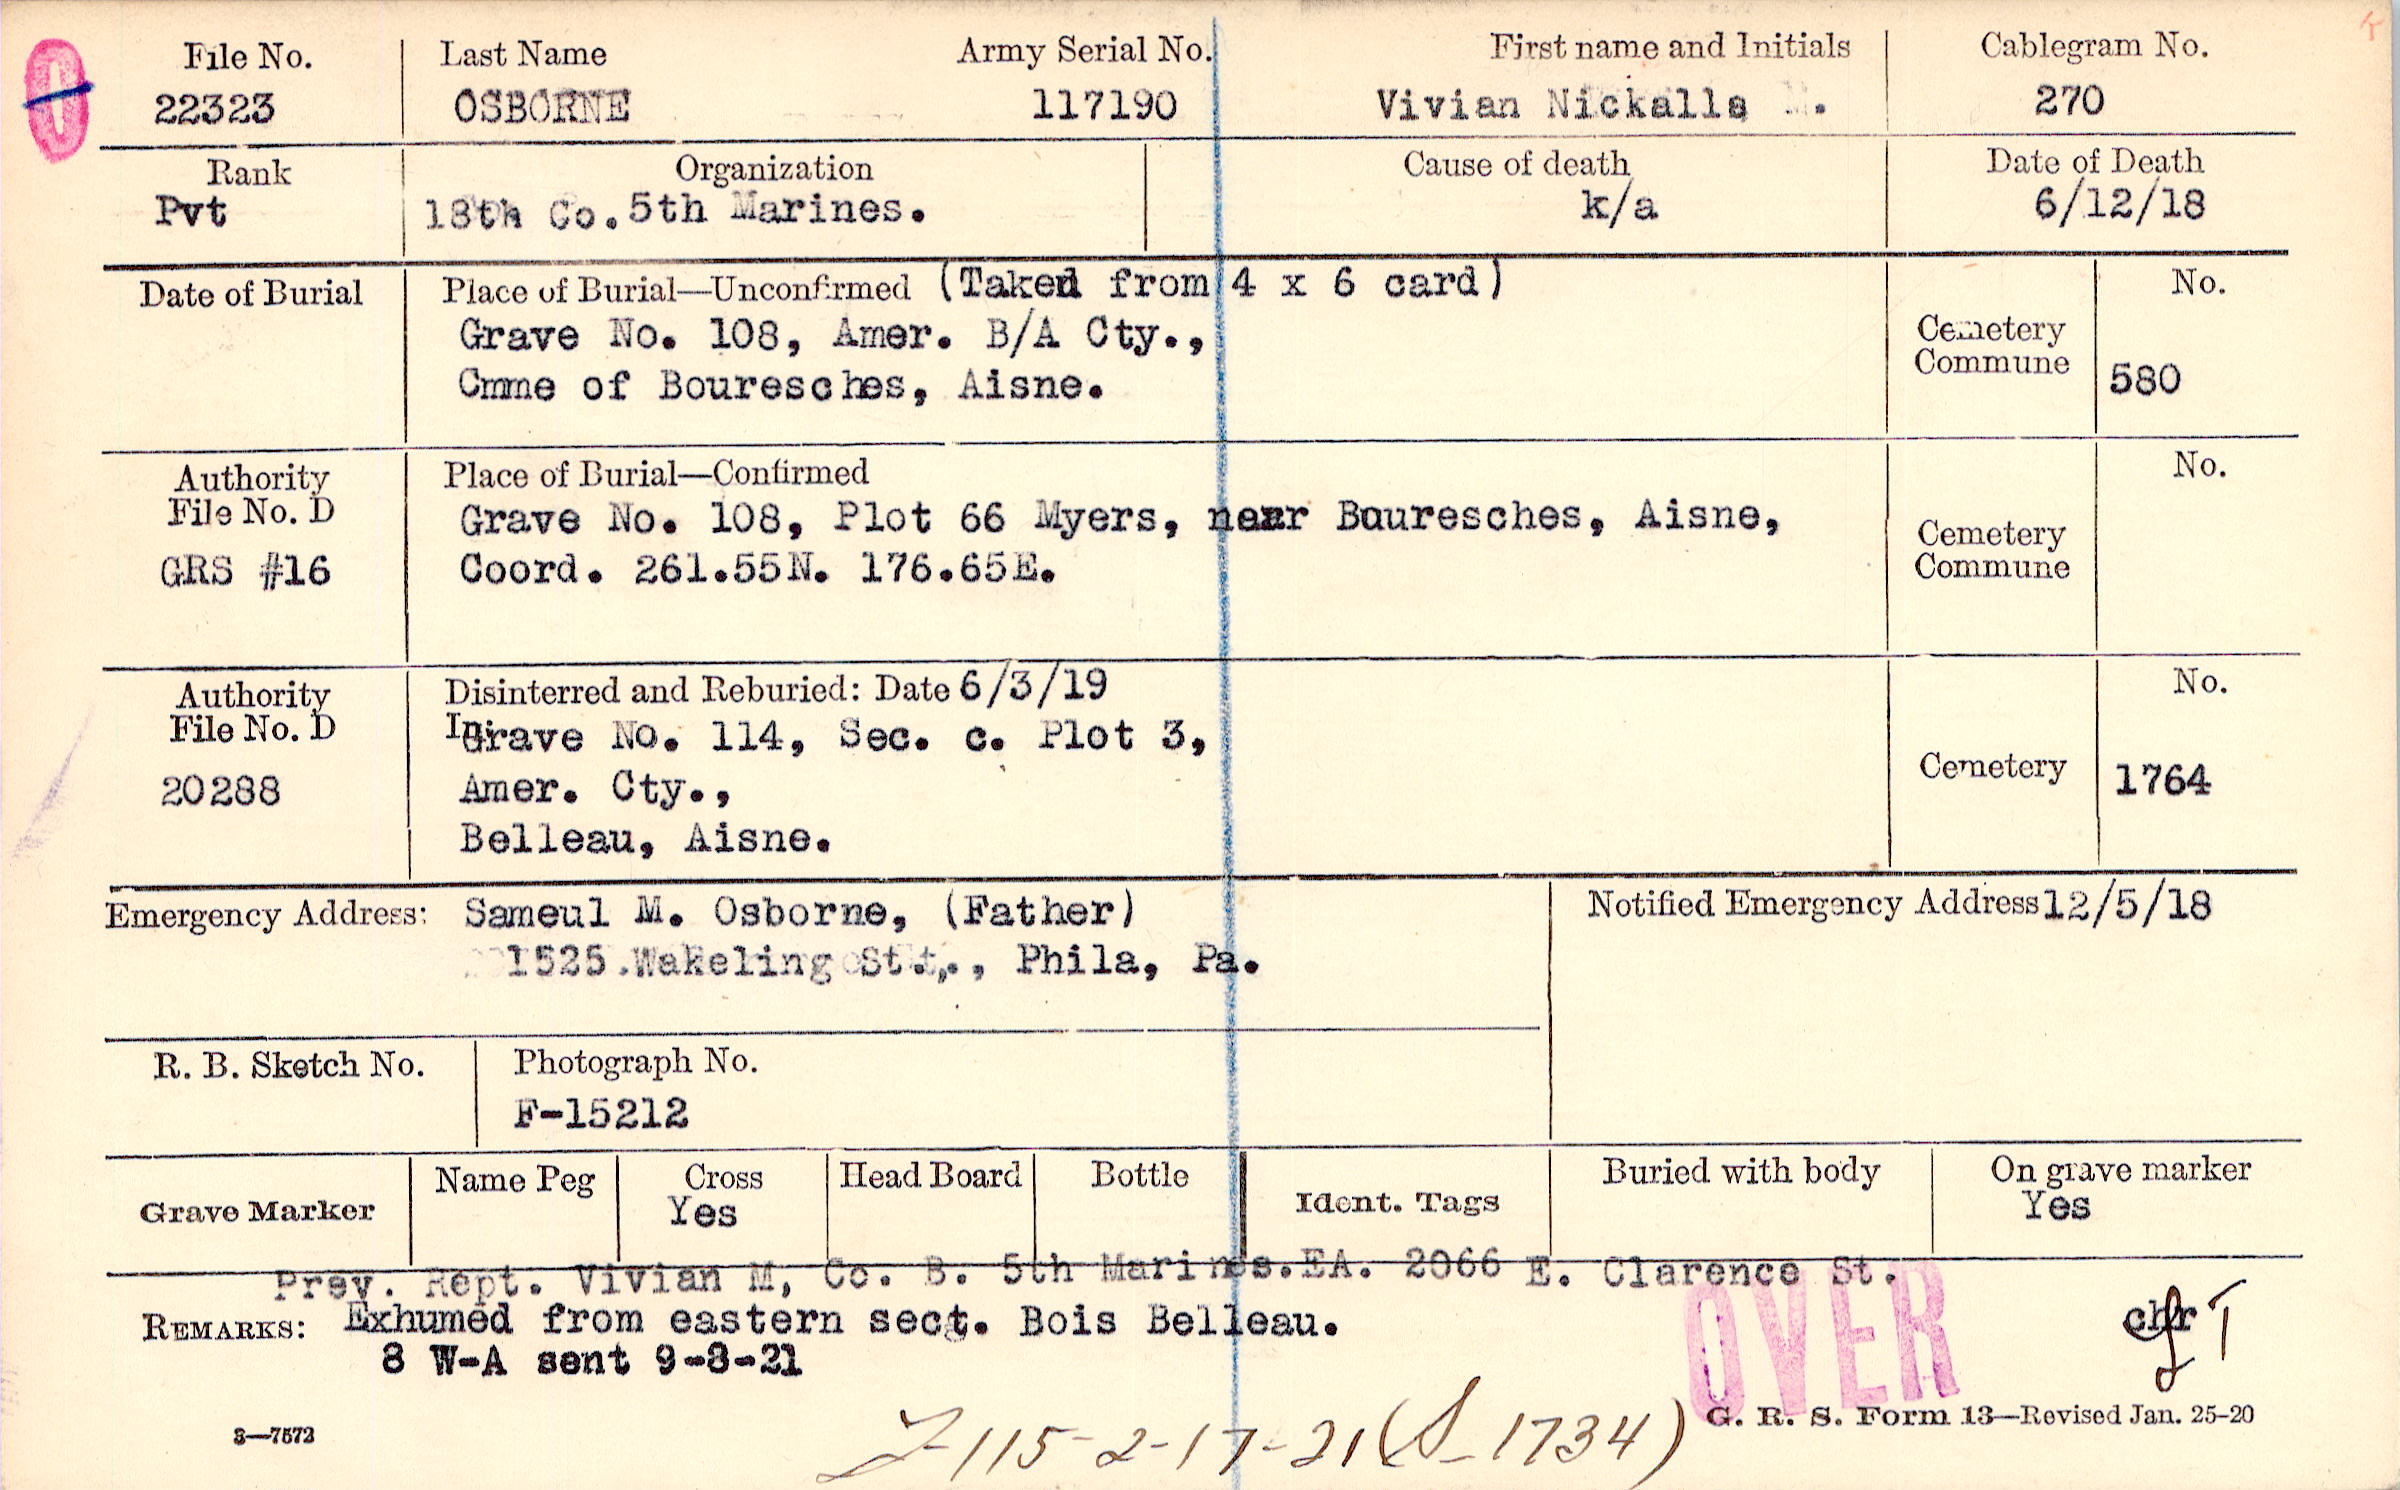 File No. Last Name Army Serial No. First name and Initials Cablegram No.
22323 OSBORNE 117190 Vivian Nickalls . 270
Rank Organization Cause of death Date of Death
Pvt 18th Co. 5th Marines. k/a 6/12/18
Date of Burial Place of Burial—Unconfirmed (Taken from 4 x 6 card) No.
Grave No. 108, Amer. B/A Cty., Cemetery
Cmme of Bouresches, Aisne. Commune 580
Authority Place of Burial—Confirmed No.
File No. D Grave No. 108, Plot 66 Myers, near Bouresches, Aisne, Cemetery
GRS #16 Coord. 261.55N. 176.65E. Commune
Authority Disinterred and Reburied: Date 6/3/19 No.
File No. D In: Grave No. 114, Sec. c. Plot 3,
20288 Amer. Cty., Cemetery 1764
Belleau, Aisne.
Emergency Address: Sameul M. Osborne, (Father) Notified Emergency Address 12/5/18
1525 Wakeling St., Phila, Pa.
R. B. Sketch No. Photograph No.
F-15212
Grave Marker Name Peg Cross Head Board Bottle Ident. Tags Buried with body On grave marker
Yes Yes
Prev. Rept. Vivian M, Co. B. 5th Marines. EA. 2066 E. Clarence St.
REMARKS: Exhumed from eastern sect. Bois Belleau. OVER chr
8 W-A sent 9-8-21
3—7573 G. R. S. Form 13—Revised Jan. 25-20
115-2-17-21 (S-1734)